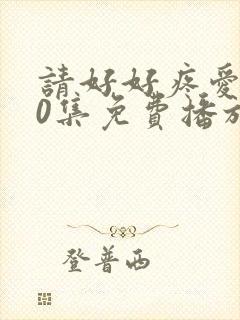 請好好疼愛
0集免費播放
登普西